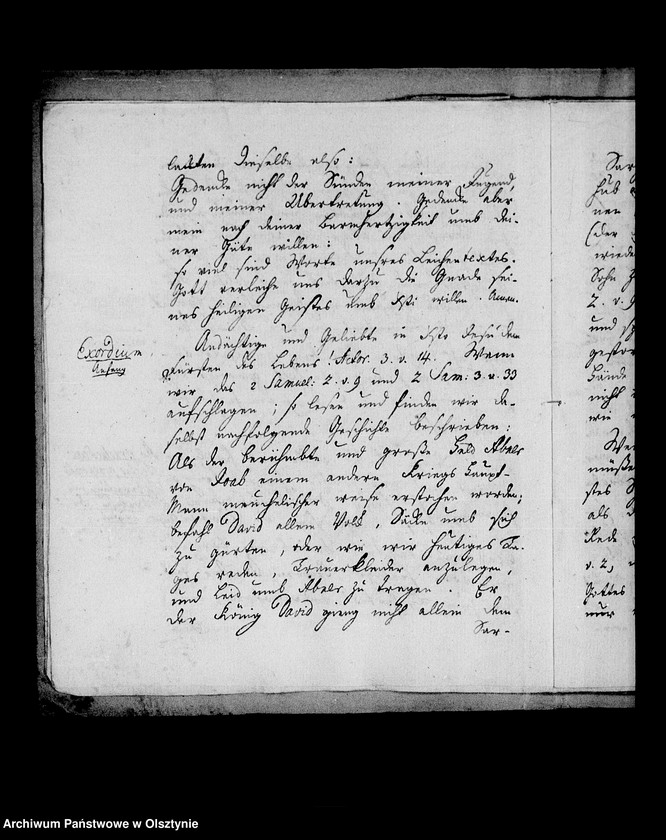 lauten dieselbe also:
Gedencke nicht der Sünden meiner Jugend,
und meiner Ubertretung. Gedencke aber
mein nach deiner Barmhertzigkeit umb dei-
ner Güte willen:
so viel sind Worte unsres Leichentextes.
Gott verleihe uns darzu die Gnade sei-
nes heiligen Geistes umb Xsti willen. Amen.
Exordium
Anfang
Andächtige und Geliebte in Xsto Jesu dem
Fürsten des Lebens! Actor. 3. v. 14. Wenn
wir das 2 Samuel: 2. v. 9 und 2 Sam: 3. v. 33
aufschlagen; so lesen und finden wir da-
selbst nachfolgende Geschichte beschrieben:
Als der berühmbte und große Held Abels
von Joab einem andern Kriegs Haupt-
Mann meuchelischer weise erstochen worden;
befahl David allem Volk, Säcke umb sich
zu gürten, oder wie wir heutiges Ta-
ges reden, Trauerkleider anzulegen,
und Leid umb Abels zu tragen. Er
der König David gieng nicht allein dem
Sar-
Sar
hub
nen
(der
wieder
Sohn
2. v. 9
und
gestor
Hände
nicht
wie
We
müße
stes
als
Rede
v. 2,
Gottes
nur
Archiwum Państwowe w Olsztynie